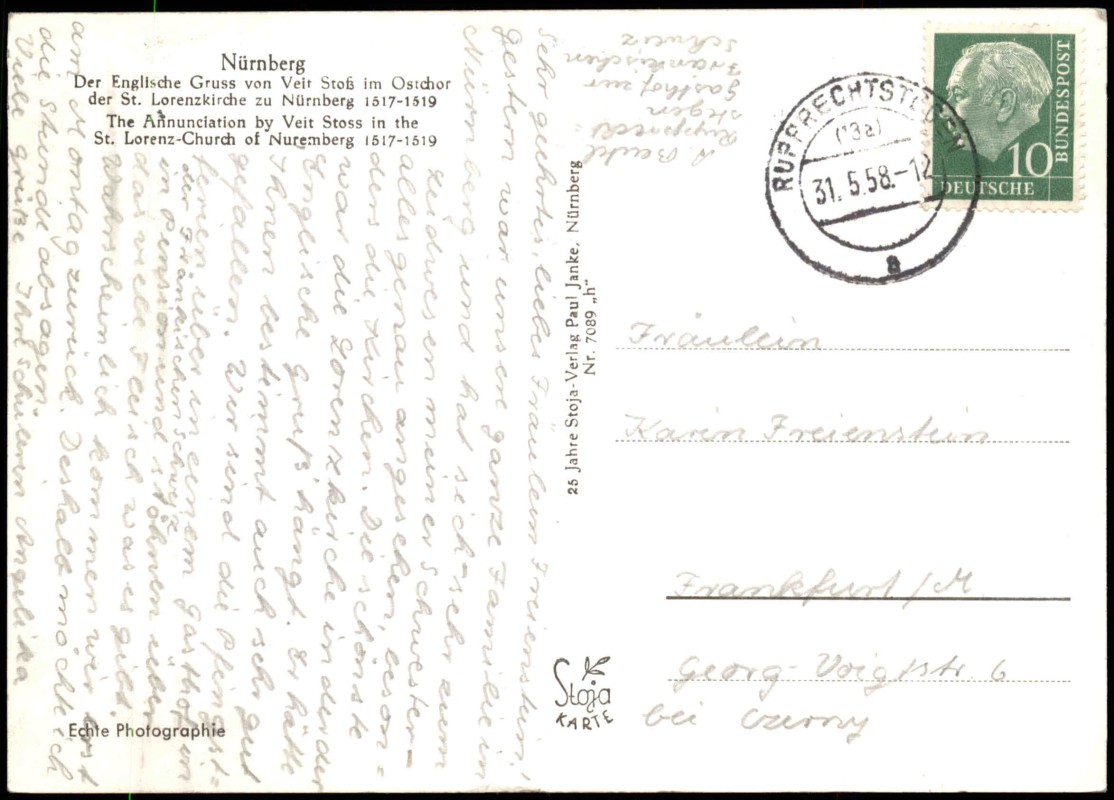 Nürnberg
Der Englische Gruss von Veit Stoß im Ostchor
der St. Lorenzkirche zu Nürnberg 1517-1519
The Annunciation by Veit Stoss in the
St. Lorenz-Church of Nuremberg 1517-1519
A. Beutl
Rupprecht-
stegen
Gasthof zur
Fränkischen
Schweiz
Sehr geehrtes, liebes Fräulein Freienstein!
Gestern war unsere ganze Familie in
Nürnberg und hat sich - sehr zum
Leidwesen meiner Schwester -
alles genau angesehen, beson-
ders die Kirchen. Die schönste
war die Lorenzkirche in der der
Englische Gruß hängt. Er hätte
Ihnen bestimmt auch sehr gut
gefallen. Wir sind die Pfingst-
ferien über in einem Gasthof in
der Fränkischen Schweiz
in Pension und stöhnen über
das viele Fleisch was es gibt.
Wahrscheinlich kommen wir erst
am Montag zurück. Deshalb möchte ich
die Stunde absagen.
Viele Grüße Ihre Schülerin Angelika
Echte Photographie
25 Jahre Stoja-Verlag Paul Janke, Nürnberg
Nr. 7089 „h"
Stoja
KARTE
RUPPRECHTSTEGEN
(13a)
31.5.58.-12
a
10
DEUTSCHE
BUNDESPOST
Fräulein
Karin Freienstein
Frankfurt/M
Georg-Voigtstr. 6
bei Czerny